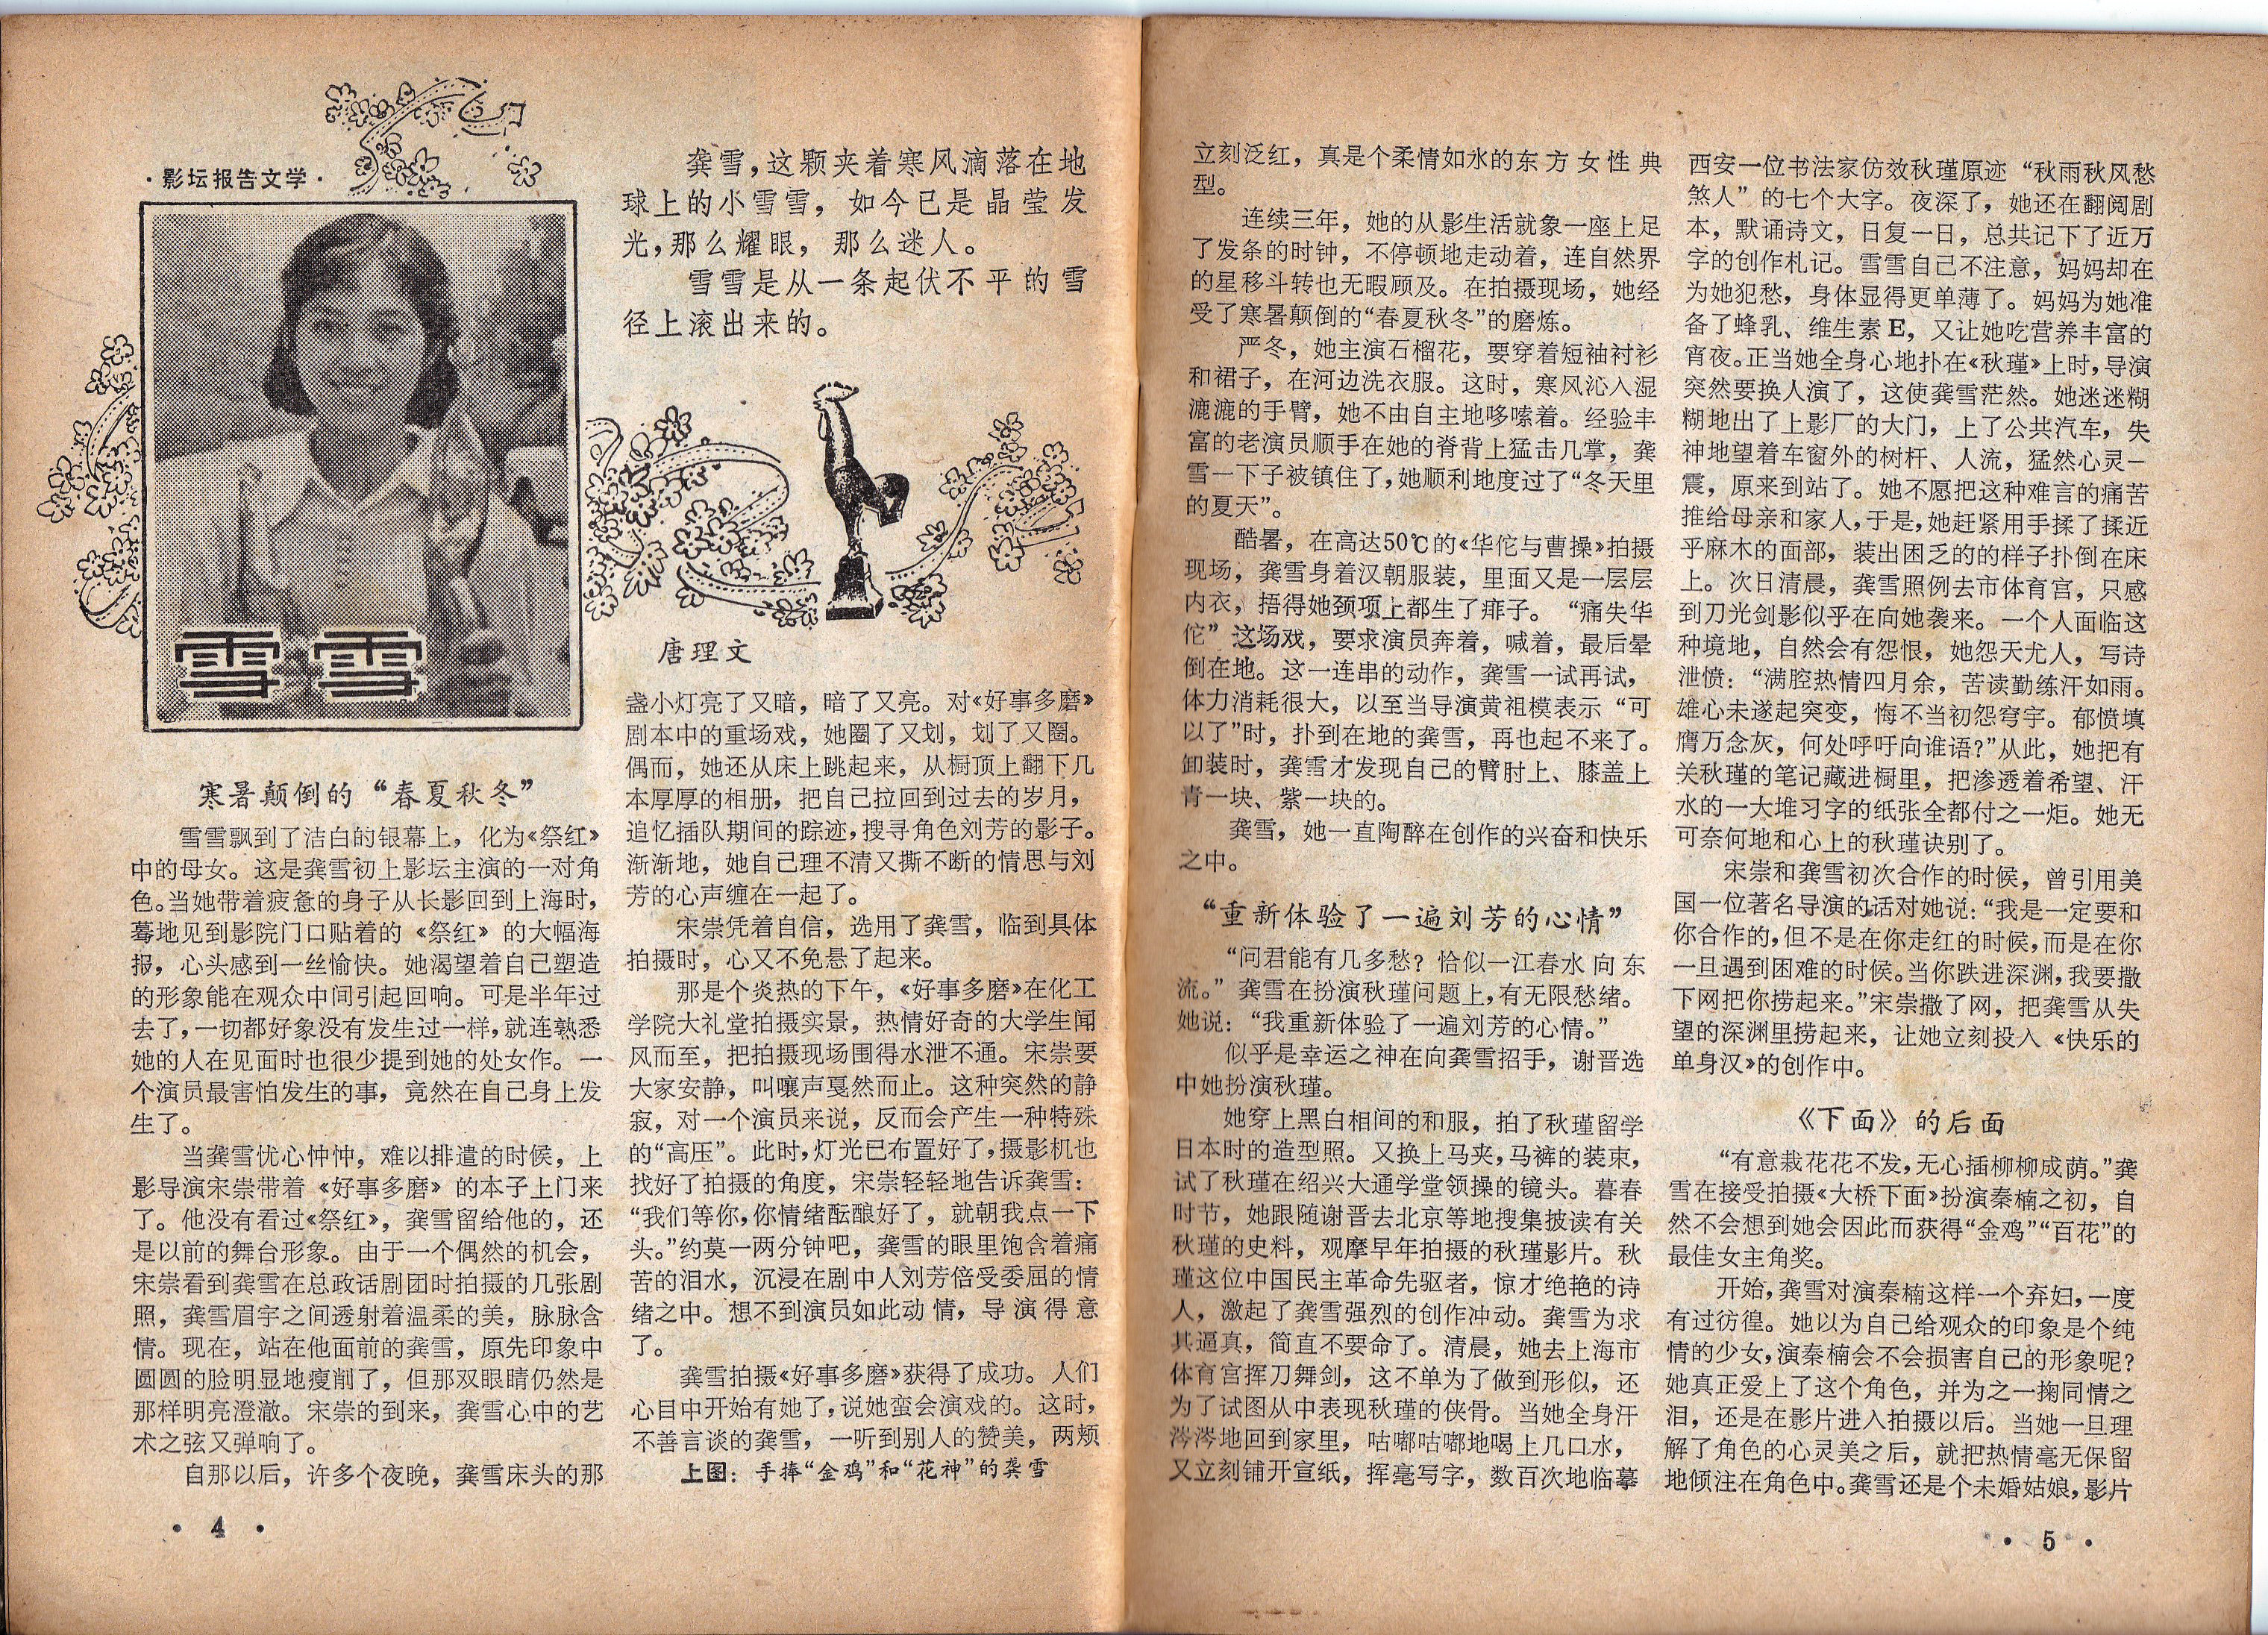 ·影坛报告文学·
雪雪
龚雪，这颗夹着寒风滴落在地
球上的小雪雪，如今已是晶莹发
光，那么耀眼，那么迷人。
雪雪是从一条起伏不平的雪
径上滚出来的。
唐理文
寒暑颠倒的“春夏秋冬”
雪雪飘到了洁白的银幕上，化为《祭红》
中的母女。这是龚雪初上影坛主演的一对角
色。当她带着疲惫的身子从长影回到上海时，
蓦地见到影院门口贴着的《祭红》的大幅海
报，心头感到一丝愉快。她渴望着自己塑造
的形象能在观众中间引起回响。可是半年过
去了，一切都好象没有发生过一样，就连熟悉
她的人在见面时也很少提到她的处女作。一
个演员最害怕发生的事，竟然在自己身上发
生了。
当龚雪忧心忡忡，难以排遣的时候，上
影导演宋崇带着《好事多磨》的本子上门来
了。他没有看过《祭红》，龚雪留给他的，还
是以前的舞台形象。由于一个偶然的机会，
宋崇看到龚雪在总政话剧团时拍摄的几张剧
照，龚雪眉宇之间透射着温柔的美，脉脉含
情。现在，站在他面前的龚雪，原先印象中
圆圆的脸明显地瘦削了，但那双眼睛仍然是
那样明亮澄澈。宋崇的到来，龚雪心中的艺
术之弦又弹响了。
自那以后，许多个夜晚，龚雪床头的那
盏小灯亮了又暗，暗了又亮。对《好事多磨》
剧本中的重场戏，她圈了又划，划了又圈。
偶而，她还从床上跳起来，从橱顶上翻下几
本厚厚的相册，把自己拉回到过去的岁月，
追忆插队期间的踪迹，搜寻角色刘芳的影子。
渐渐地，她自己理不清又撕不断的情思与刘
芳的心声缠在一起了。
宋崇凭着自信，选用了龚雪，临到具体
拍摄时，心又不免悬了起来。
那是个炎热的下午，《好事多磨》在化工
学院大礼堂拍摄实景，热情好奇的大学生闻
风而至，把拍摄现场围得水泄不通。宋崇要
大家安静，叫嚷声戛然而止。这种突然的静
寂，对一个演员来说，反而会产生一种特殊
的“高压”。此时，灯光已布置好了，摄影机也
找好了拍摄的角度，宋崇轻轻地告诉龚雪：
“我们等你，你情绪酝酿好了，就朝我点一下
头。”约莫一两分钟吧，龚雪的眼里饱含着痛
苦的泪水，沉浸在剧中人刘芳倍受委屈的情
绪之中。想不到演员如此动情，导演得意
了。
龚雪拍摄《好事多磨》获得了成功。人们
心目中开始有她了，说她蛮会演戏的。这时，
不善言谈的龚雪，一听到别人的赞美，两颊
上图：手捧“金鸡”和“花神”的龚雪
· 4 ·
立刻泛红，真是个柔情如水的东方女性典
型。
连续三年，她的从影生活就象一座上足
了发条的时钟，不停顿地走动着，连自然界
的星移斗转也无暇顾及。在拍摄现场，她经
受了寒暑颠倒的“春夏秋冬”的磨炼。
严冬，她主演石榴花，要穿着短袖衬衫
和裙子，在河边洗衣服。这时，寒风沁入湿
漉漉的手臂，她不由自主地哆嗦着。经验丰
富的老演员顺手在她的脊背上猛击几掌，龚
雪一下子被镇住了，她顺利地度过了“冬天里
的夏天”。
酷暑，在高达50℃的《华佗与曹操》拍摄
现场，龚雪身着汉朝服装，里面又是一层层
内衣，捂得她颈项上都生了痱子。“痛失华
佗”这场戏，要求演员奔着，喊着，最后晕
倒在地。这一连串的动作，龚雪一试再试，
体力消耗很大，以至当导演黄祖模表示“可
以了”时，扑到在地的龚雪，再也起不来了。
卸装时，龚雪才发现自己的臂肘上、膝盖上
青一块、紫一块的。
龚雪，她一直陶醉在创作的兴奋和快乐
之中。
“重新体验了一遍刘芳的心情”
“问君能有几多愁？恰似一江春水向东
流。”龚雪在扮演秋瑾问题上，有无限愁绪。
她说：“我重新体验了一遍刘芳的心情。”
似乎是幸运之神在向龚雪招手，谢晋选
中她扮演秋瑾。
她穿上黑白相间的和服，拍了秋瑾留学
日本时的造型照。又换上马夹，马裤的装束，
试了秋瑾在绍兴大通学堂领操的镜头。暮春
时节，她跟随谢晋去北京等地搜集披读有关
秋瑾的史料，观摩早年拍摄的秋瑾影片。秋
瑾这位中国民主革命先驱者，惊才绝艳的诗
人，激起了龚雪强烈的创作冲动。龚雪为求
其逼真，简直不要命了。清晨，她去上海市
体育宫挥刀舞剑，这不单为了做到形似，还
为了试图从中表现秋瑾的侠骨。当她全身汗
涔涔地回到家里，咕嘟咕嘟地喝上几口水，
又立刻铺开宣纸，挥毫写字，数百次地临摹
西安一位书法家仿效秋瑾原迹“秋雨秋风愁
煞人”的七个大字。夜深了，她还在翻阅剧
本，默诵诗文，日复一日，总共记下了近万
字的创作札记。雪雪自己不注意，妈妈却在
为她犯愁，身体显得更单薄了。妈妈为她准
备了蜂乳、维生素E，又让她吃营养丰富的
宵夜。正当她全身心地扑在《秋瑾》上时，导演
突然要换人演了，这使龚雪茫然。她迷迷糊
糊地出了上影厂的大门，上了公共汽车，失
神地望着车窗外的树杆、人流，猛然心灵一
震，原来到站了。她不愿把这种难言的痛苦
推给母亲和家人，于是，她赶紧用手揉了揉近
乎麻木的面部，装出困乏的的样子扑倒在床
上。次日清晨，龚雪照例去市体育宫，只感
到刀光剑影似乎在向她袭来。一个人面临这
种境地，自然会有怨恨，她怨天尤人，写诗
泄愤：“满腔热情四月余，苦读勤练汗如雨。
雄心未遂起突变，悔不当初怨穹宇。郁愤填
膺万念灰，何处呼吁向谁语？”从此，她把有
关秋瑾的笔记藏进橱里，把渗透着希望、汗
水的一大堆习字的纸张全都付之一炬。她无
可奈何地和心上的秋瑾诀别了。
宋崇和龚雪初次合作的时候，曾引用美
国一位著名导演的话对她说：“我是一定要和
你合作的，但不是在你走红的时候，而是在你
一旦遇到困难的时候。当你跌进深渊，我要撒
下网把你捞起来。”宋崇撒了网，把龚雪从失
望的深渊里捞起来，让她立刻投入《快乐的
单身汉》的创作中。
《下面》的后面
“有意栽花花不发，无心插柳柳成荫。”龚
雪在接受拍摄《大桥下面》扮演秦楠之初，自
然不会想到她会因此而获得“金鸡”“百花”的
最佳女主角奖。
开始，龚雪对演秦楠这样一个弃妇，一度
有过彷徨。她以为自己给观众的印象是个纯
情的少女，演秦楠会不会损害自己的形象呢？
她真正爱上了这个角色，并为之一掬同情之
泪，还是在影片进入拍摄以后。当她一旦理
解了角色的心灵美之后，就把热情毫无保留
地倾注在角色中。龚雪还是个未婚姑娘，影片
· 5 ·